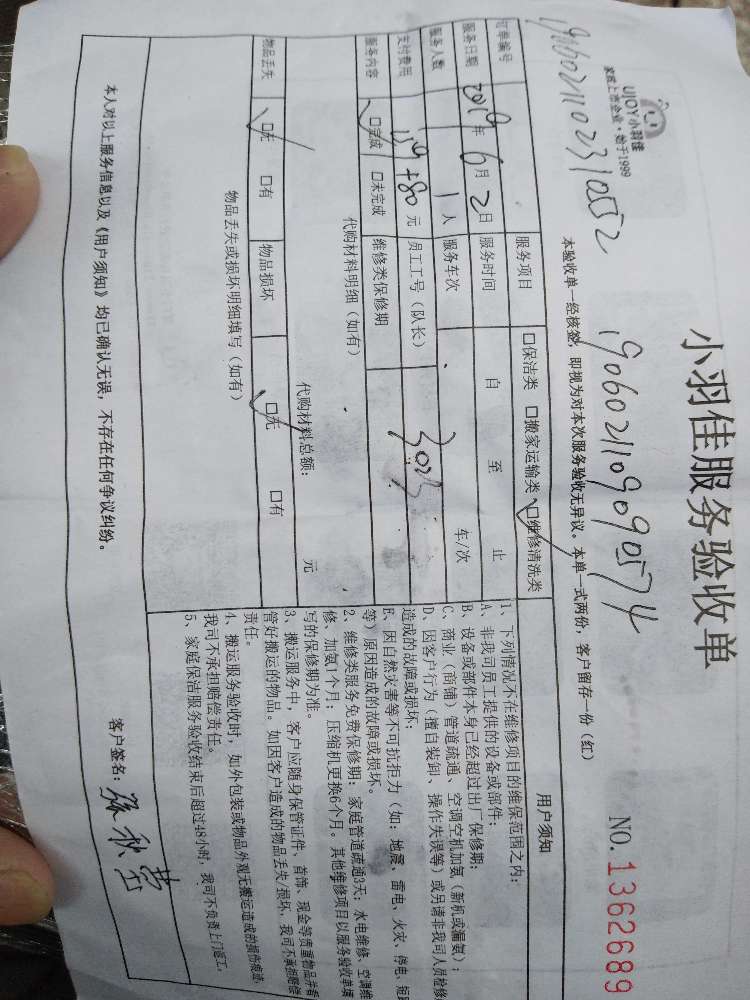 UJOY小羽佳
家政上市企业·始于1999
小羽佳服务验收单
NO.1362689
本验收单一经核签，即视为对本次服务验收无异议。本单一式两份，客户留存一份（红）
订单编号
1906021102310552
1906021109090574
服务项目 口保洁类 口搬家运输类 口维修清洗类
服务日期 2019年6月2日 服务时间 自 至 止
服务人数 1人 服务车次 车/次
支付费用 119+80元 员工工号（队长） 3023
服务内容 口完成 口未完成 维修类保修期
代购材料明细（如有）
代购材料总额： 元
物品丢失 口无 口有 物品损坏 口无 口有
物品丢失或损坏明细填写（如有）
用户须知
1、下列情况不在维修项目的维保范围之内：
A、非我司员工提供的设备或部件；
B、设备或部件本身已经超过出厂保修期；
C、商业（商铺）管道疏通、空调空机加氨（新机或漏氨）；
D、因客户行为（擅自装卸、操作失误等）或另请非我司人员检修
造成的故障或损坏；
E、因自然灾害等不可抗拒力（如：地震、雷电、火灾、停电、短路
等）原因造成的故障或损坏。
2、维修类服务免费保修期：家庭管道疏通3天；水电维修、空调维
修、加氨1个月；压缩机更换6个月。其他维修项目以服务验收单填
写的保修期为准。
3、搬运服务中，客户应随身保管证件、首饰、现金等贵重物品并看
管好搬运的物品。如因客户造成的物品丢失/损坏，我司不承担赔偿
责任。
4、搬运服务验收时，如外包装或物品外观无搬运造成的损伤痕迹，
我司不承担赔偿责任。
5、家庭保洁服务验收结束后超过48小时，我司不负责上门返工。
本人对以上服务信息以及《用户须知》均已确认无误，不存在任何争议纠纷。
客户签名：张秋莹